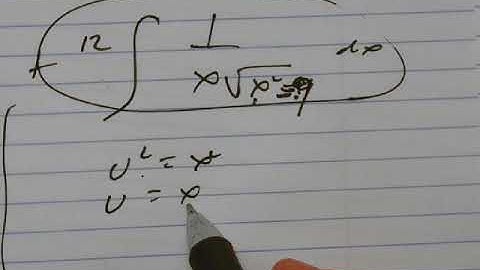 12 ∫ 1 / x√x² - 9 dx
u² = x²
u = x